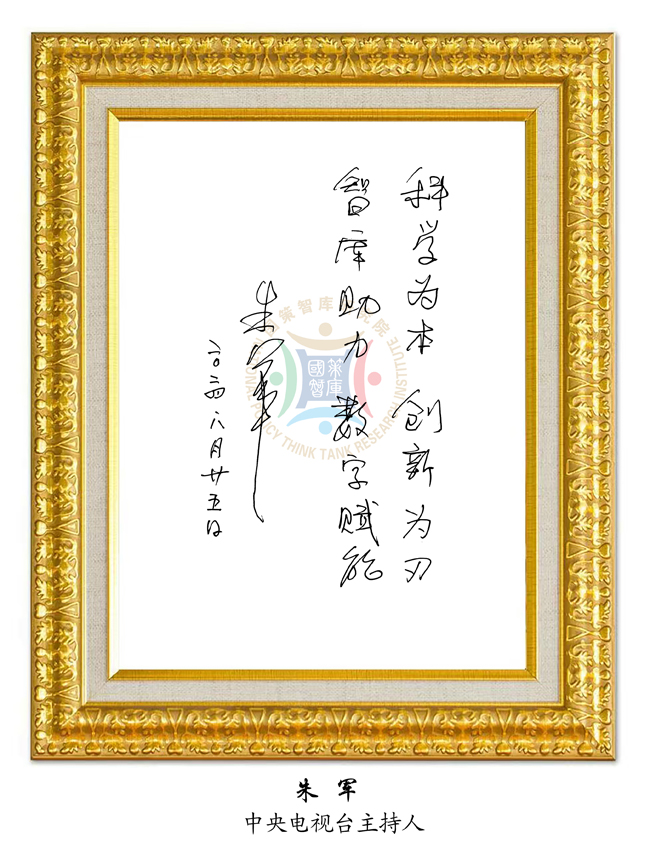 科学为本 创新为刃
智库助力 数字赋能
朱军
二〇二四八月廿五日
策智库
院
POLICY THINK TANK RESEARCH INSTITUTE
國策
智庫
朱 军
中央电视台主持人